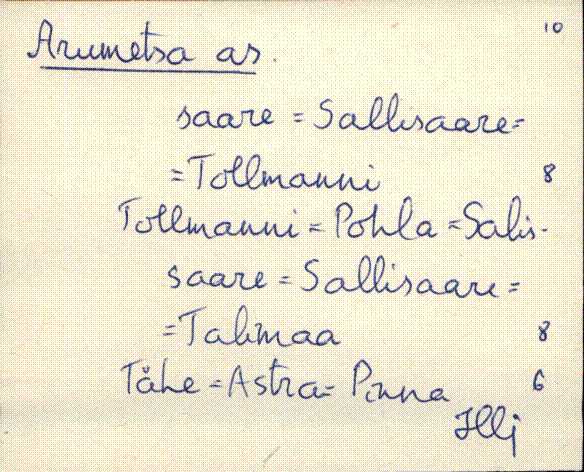 10
Arumetsa as.
saare = Sallisaare=
=Tollmanni 8
Tollmanni = Pohla = Salis-
saare = Sallisaare =
=Talimaa 8
Tähe = Astra = Pinna 6